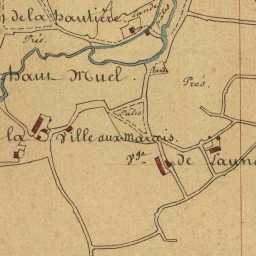 de la hautière
Prés
haut Muel
Prés
la Ville aux Marais
Vge de Launa